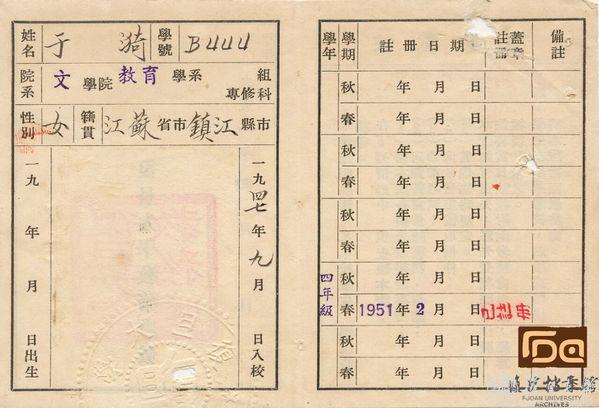 姓名 于漪 學號 B444
院系 文學院 教育 學系 組 專修科
性別 女 籍貫 江蘇 省市 鎮江 縣市
一九 年 月 日出生
一九四七年九月 日入校
學年 學期 註冊日期 註冊蓋章 備註
秋 年 月 日
春 年 月 日
秋 年 月 日
春 年 月 日
秋 年 月 日
春 年 月 日
四年級
秋 年 月 日
春 1951年2月 日
秋 年 月 日
春 年 月 日
FUDAN UNIVERSITY
ARCHIVES